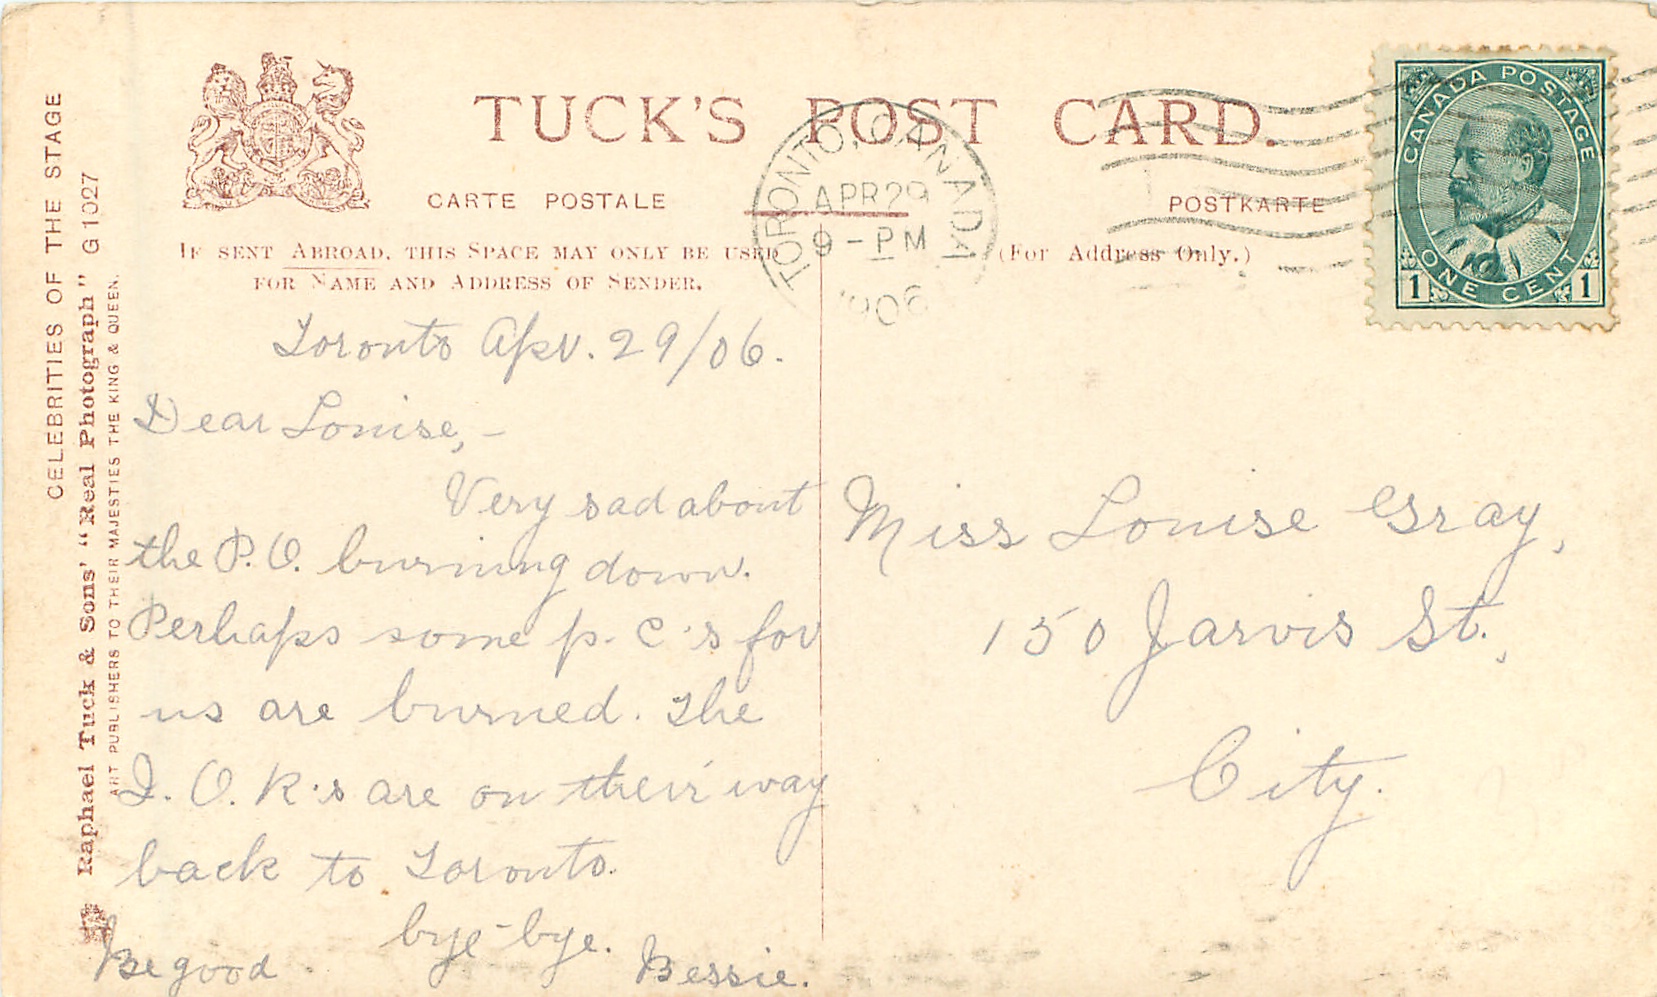 TUCK'S POST CARD.
CARTE POSTALE
POSTKARTE
IF SENT ABROAD, THIS SPACE MAY ONLY BE USED
FOR NAME AND ADDRESS OF SENDER.
(For Address Only.)
TORONTO, CANADA
APR 29
9 - PM
1906
CANADA POSTAGE
1 ONE CENT 1
CELEBRITIES OF THE STAGE
Raphael Tuck & Sons' "Real Photograph" G 1027
ART PUBLISHERS TO THEIR MAJESTIES THE KING & QUEEN.
Toronto Apr. 29/06.
Dear Louise,-
Very sad about
the P.O. burning down.
Perhaps some p.c's for
us are burned. The
I.O.R's are on their way
back to Toronto.
bye-bye.
Be good
Bessie.
Miss Louise Gray,
150 Jarvis St.,
City.